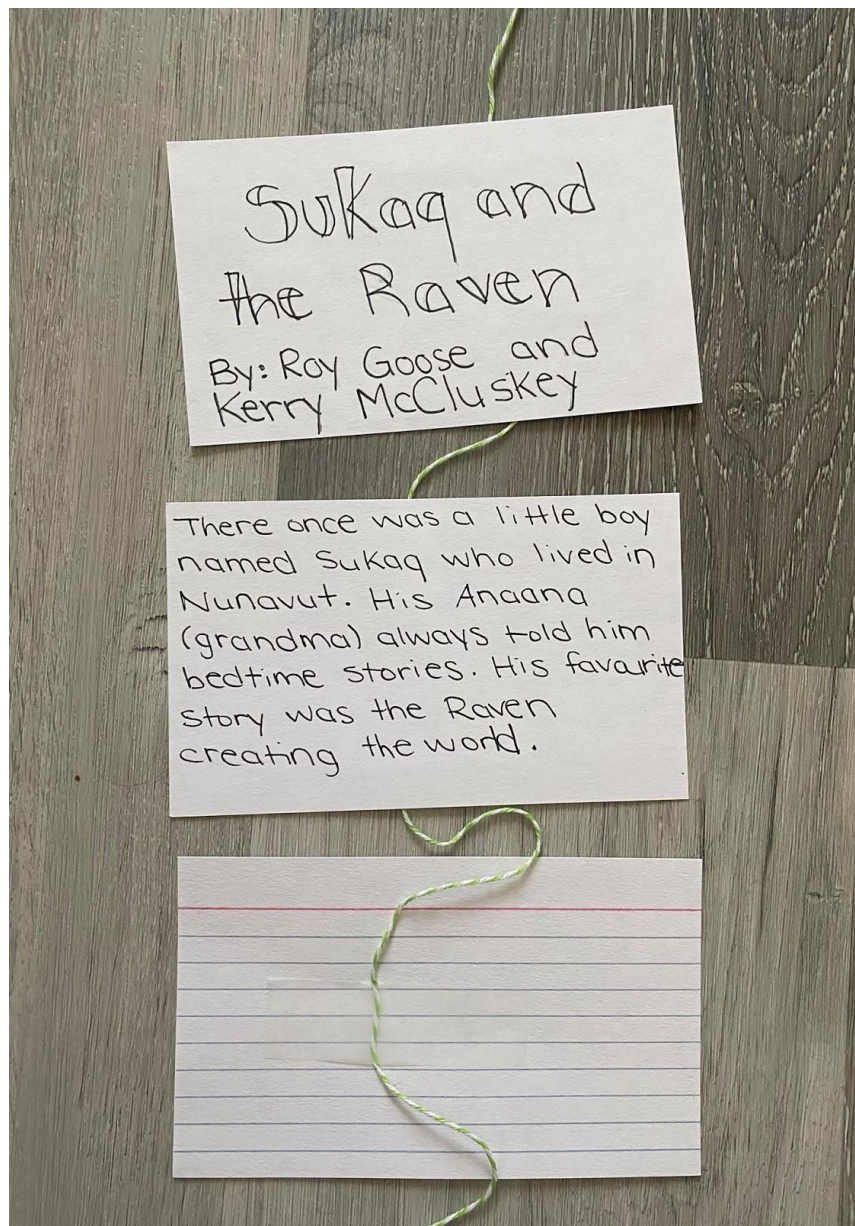 Sukaq and
the Raven
By: Roy Goose and
Kerry McCluskey
There once was a little boy
named Sukaq who lived in
Nunavut. His Anaana
(grandma) always told him
bedtime stories. His favourite
story was the Raven
creating the world.